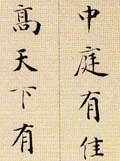 中庭有佳
高天下有